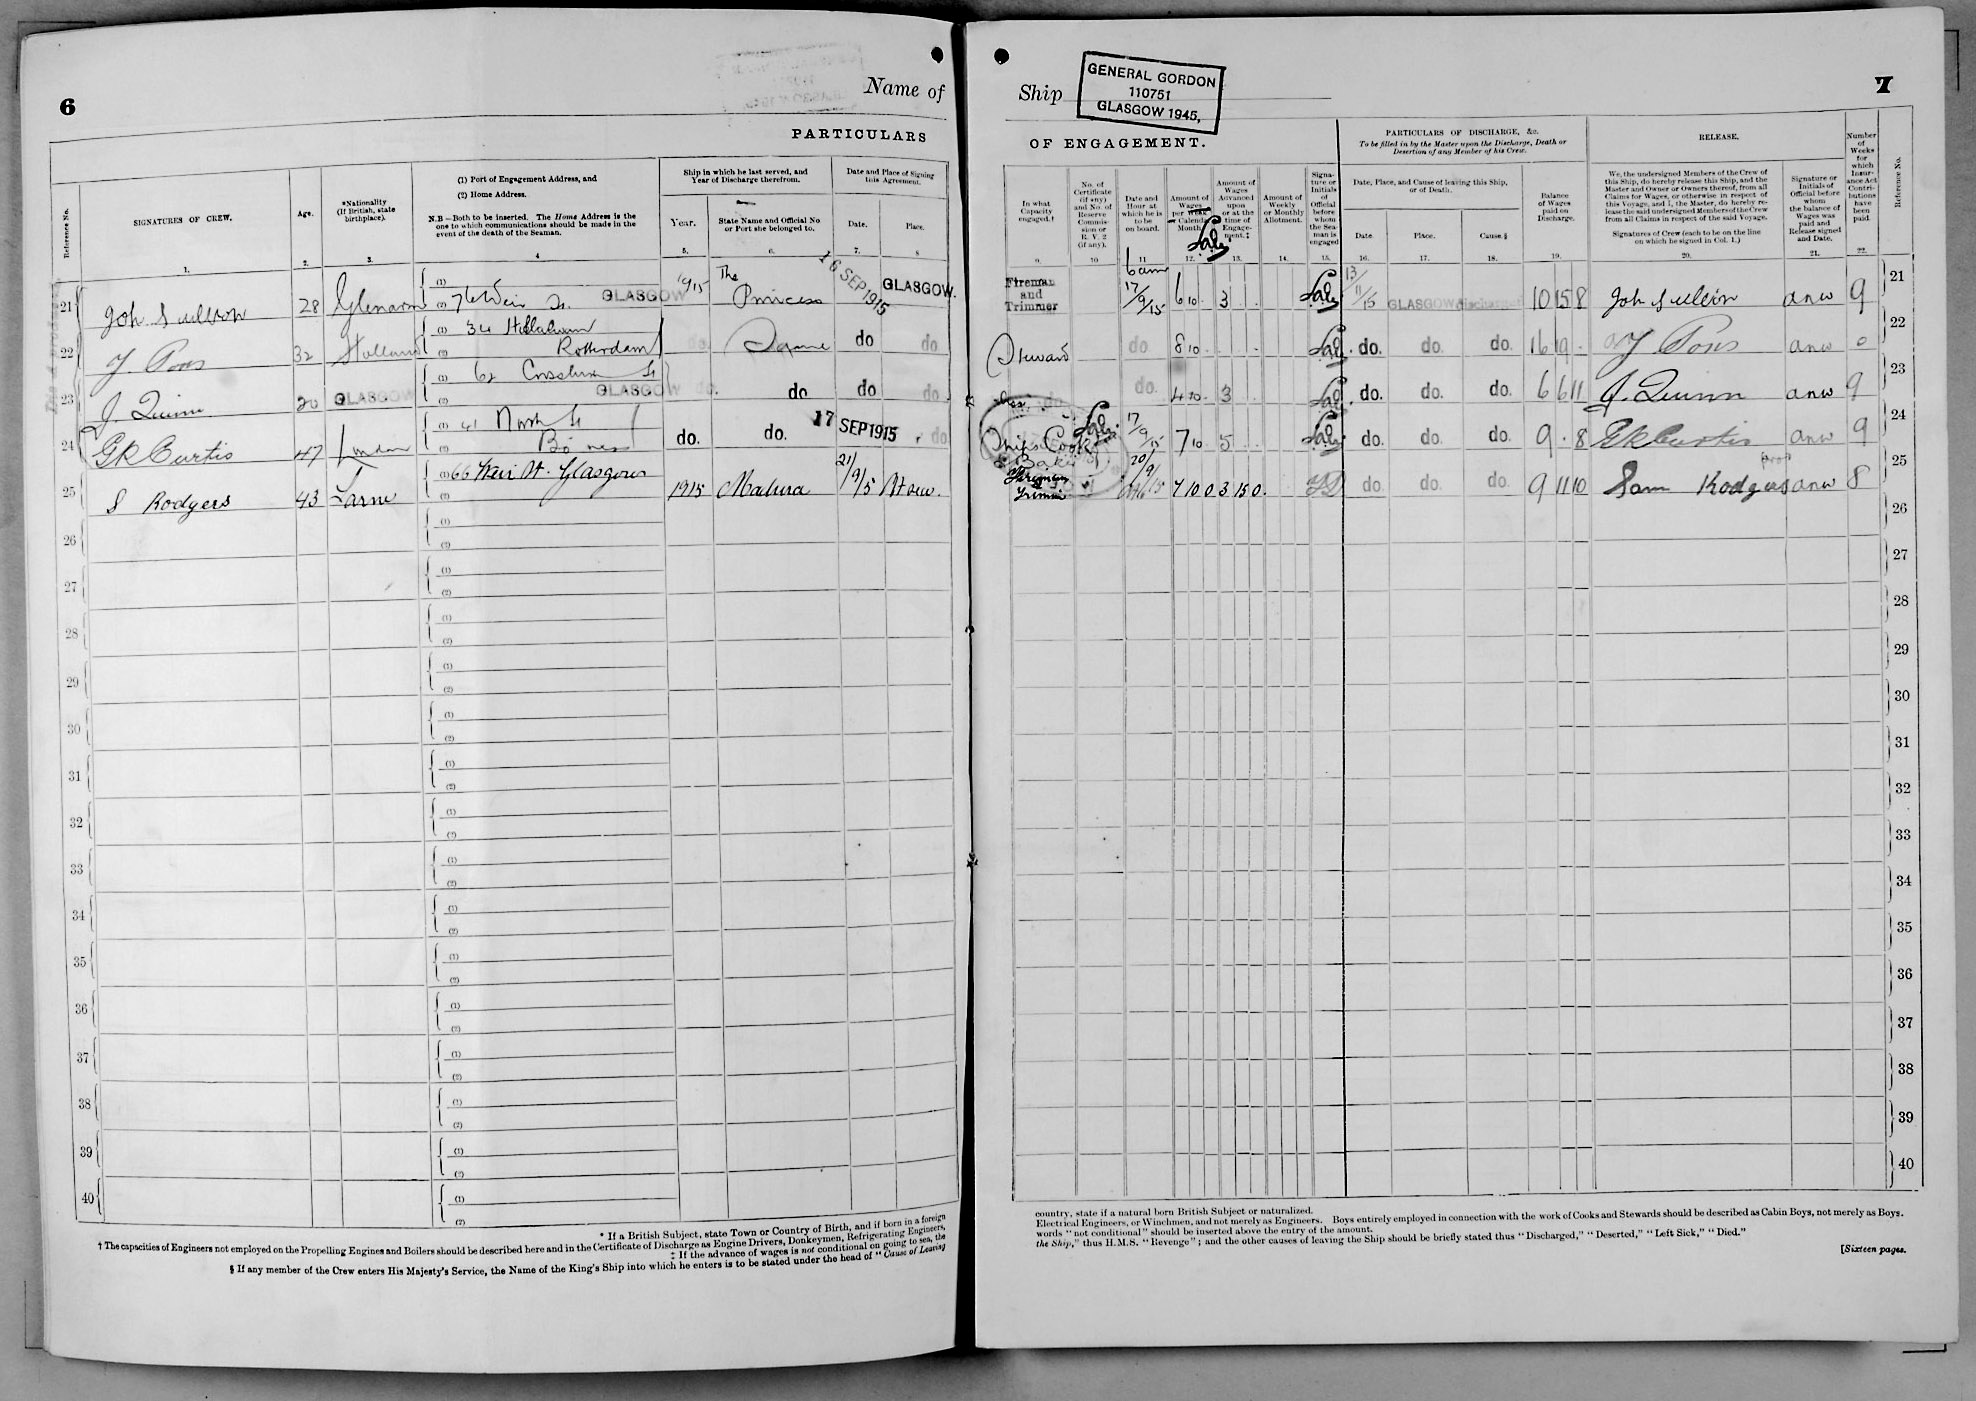 6
Name of
PARTICULARS
Reference No.
SIGNATURES OF CREW.
Age.
*Nationality
(If British, state
birthplace).
(1) Port of Engagement Address, and
(2) Home Address.
N.B—Both to be inserted. The Home Address is the
one to which communications should be made in the
event of the death of the Seaman.
Ship in which he last served, and
Year of Discharge therefrom.
Year.
State Name and Official No
or Port she belonged to.
Date and Place of Signing
this Agreement.
Date.
Place.
1. 2. 3. 4 5. 6. 7. 8
21 Joh Sullivan 28 Glenarm (1) (2) 76 Weir St. GLASGOW 1915 The Princess 16 SEP 1915 GLASGOW.
22 Y. Pons 32 Holland (1) 34 (2) Rotterdam do. Same do do
23 J. Quinn 20 GLASGOW (1) 62 St (2) GLASGOW do. do do do
24 G R Curtis 47 London (1) 41 North St (2) Bo'ness do. do. 17 SEP 1915 do
25 S Rodgers 43 Larne (1) 66 Weir St. Glasgow (2) 1915 Madura 21/9/15
26 (1) (2)
27 (1) (2)
28 (1) (2)
29 (1) (2)
30 (1) (2)
31 (1) (2)
32 (1) (2)
33 (1) (2)
34 (1) (2)
35 (1) (2)
36 (1) (2)
37 (1) (2)
38 (1) (2)
39 (1) (2)
40 (1) (2)
* If a British Subject, state Town or Country of Birth, and if born in a foreign
† The capacities of Engineers not employed on the Propelling Engines and Boilers should be described here and in the Certificate of Discharge as Engine Drivers, Donkeymen, Refrigerating Engineers,
‡ If the advance of wages is not conditional on going to sea, the
§ If any member of the Crew enters His Majesty's Service, the Name of the King's Ship into which he enters is to be stated under the head of "Cause of Leaving
Ship
GENERAL GORDON
110751
GLASGOW 1945,
7
OF ENGAGEMENT.
PARTICULARS OF DISCHARGE, &c.
To be filled in by the Master upon the Discharge, Death or
Desertion of any Member of his Crew.
RELEASE.
In what
Capacity
engaged.†
No. of
Certificate
(if any)
and No. of
Reserve
Commis-
sion or
R. V. 2
(if any).
Date and
Hour at
which he is
to be
on board.
Amount of
Wages
per Week
Calendar
Month
Amount of
Wages
Advanced
upon
or at the
time of
Engage-
ment.‡
Amount of
Weekly
or Monthly
Allotment.
Signa-
ture or
Initials
of
Official
before
whom
the Sea-
man is
engaged
Date, Place, and Cause of leaving this Ship,
or of Death.
Date.
Place.
Cause.§
Balance
of Wages
paid on
Discharge.
We, the undersigned Members of the Crew of
this Ship, do hereby release this Ship, and the
Master and Owner or Owners thereof, from all
Claims for Wages, or otherwise in respect of
this Voyage, and I, the Master, do hereby re-
lease the said undersigned Members of the Crew
from all Claims in respect of the said Voyage.
Signatures of Crew (each to be on the line
on which he signed in Col. 1.)
Signature or
Initials of
Official before
whom
the balance of
Wages was
paid and
Release signed
and Date.
Number
of
Weeks
for
which
Insur-
ance Act
Contri-
butions
have
been
paid.
Reference No.
9. 10 11 12. 13. 14. 15. 16. 17. 18. 19. 20. 21. 22
Fireman and Trimmer 6 am 17/9/15 6 10 3 13/11/15 GLASGOW Discharged 10 15 8 Joh Sullivan anw 9 21
Steward do 8 10 do. do. do. 16 19 Y Pons anw 0 22
do. 4 10 3 do. do. do. 6 6 11 J. Quinn anw 9 23
Ships Cook & Baker 17/9/15 7 10 5 do. do. do. 9 - 8 G R Curtis anw 9 24
Fireman Trimmer 20/9/15 7 10 0 3 15 0 do. do. do. 9 11 10 Sam Rodgers anw 8 25
26
27
28
29
30
31
32
33
34
35
36
37
38
39
40
country, state if a natural born British Subject or naturalized.
Electrical Engineers, or Winchmen, and not merely as Engineers. Boys entirely employed in connection with the work of Cooks and Stewards should be described as Cabin Boys, not merely as Boys.
words "not conditional" should be inserted above the entry of the amount.
the Ship," thus H.M.S. "Revenge"; and the other causes of leaving the Ship should be briefly stated thus "Discharged," "Deserted," "Left Sick," "Died."
[Sixteen pages.